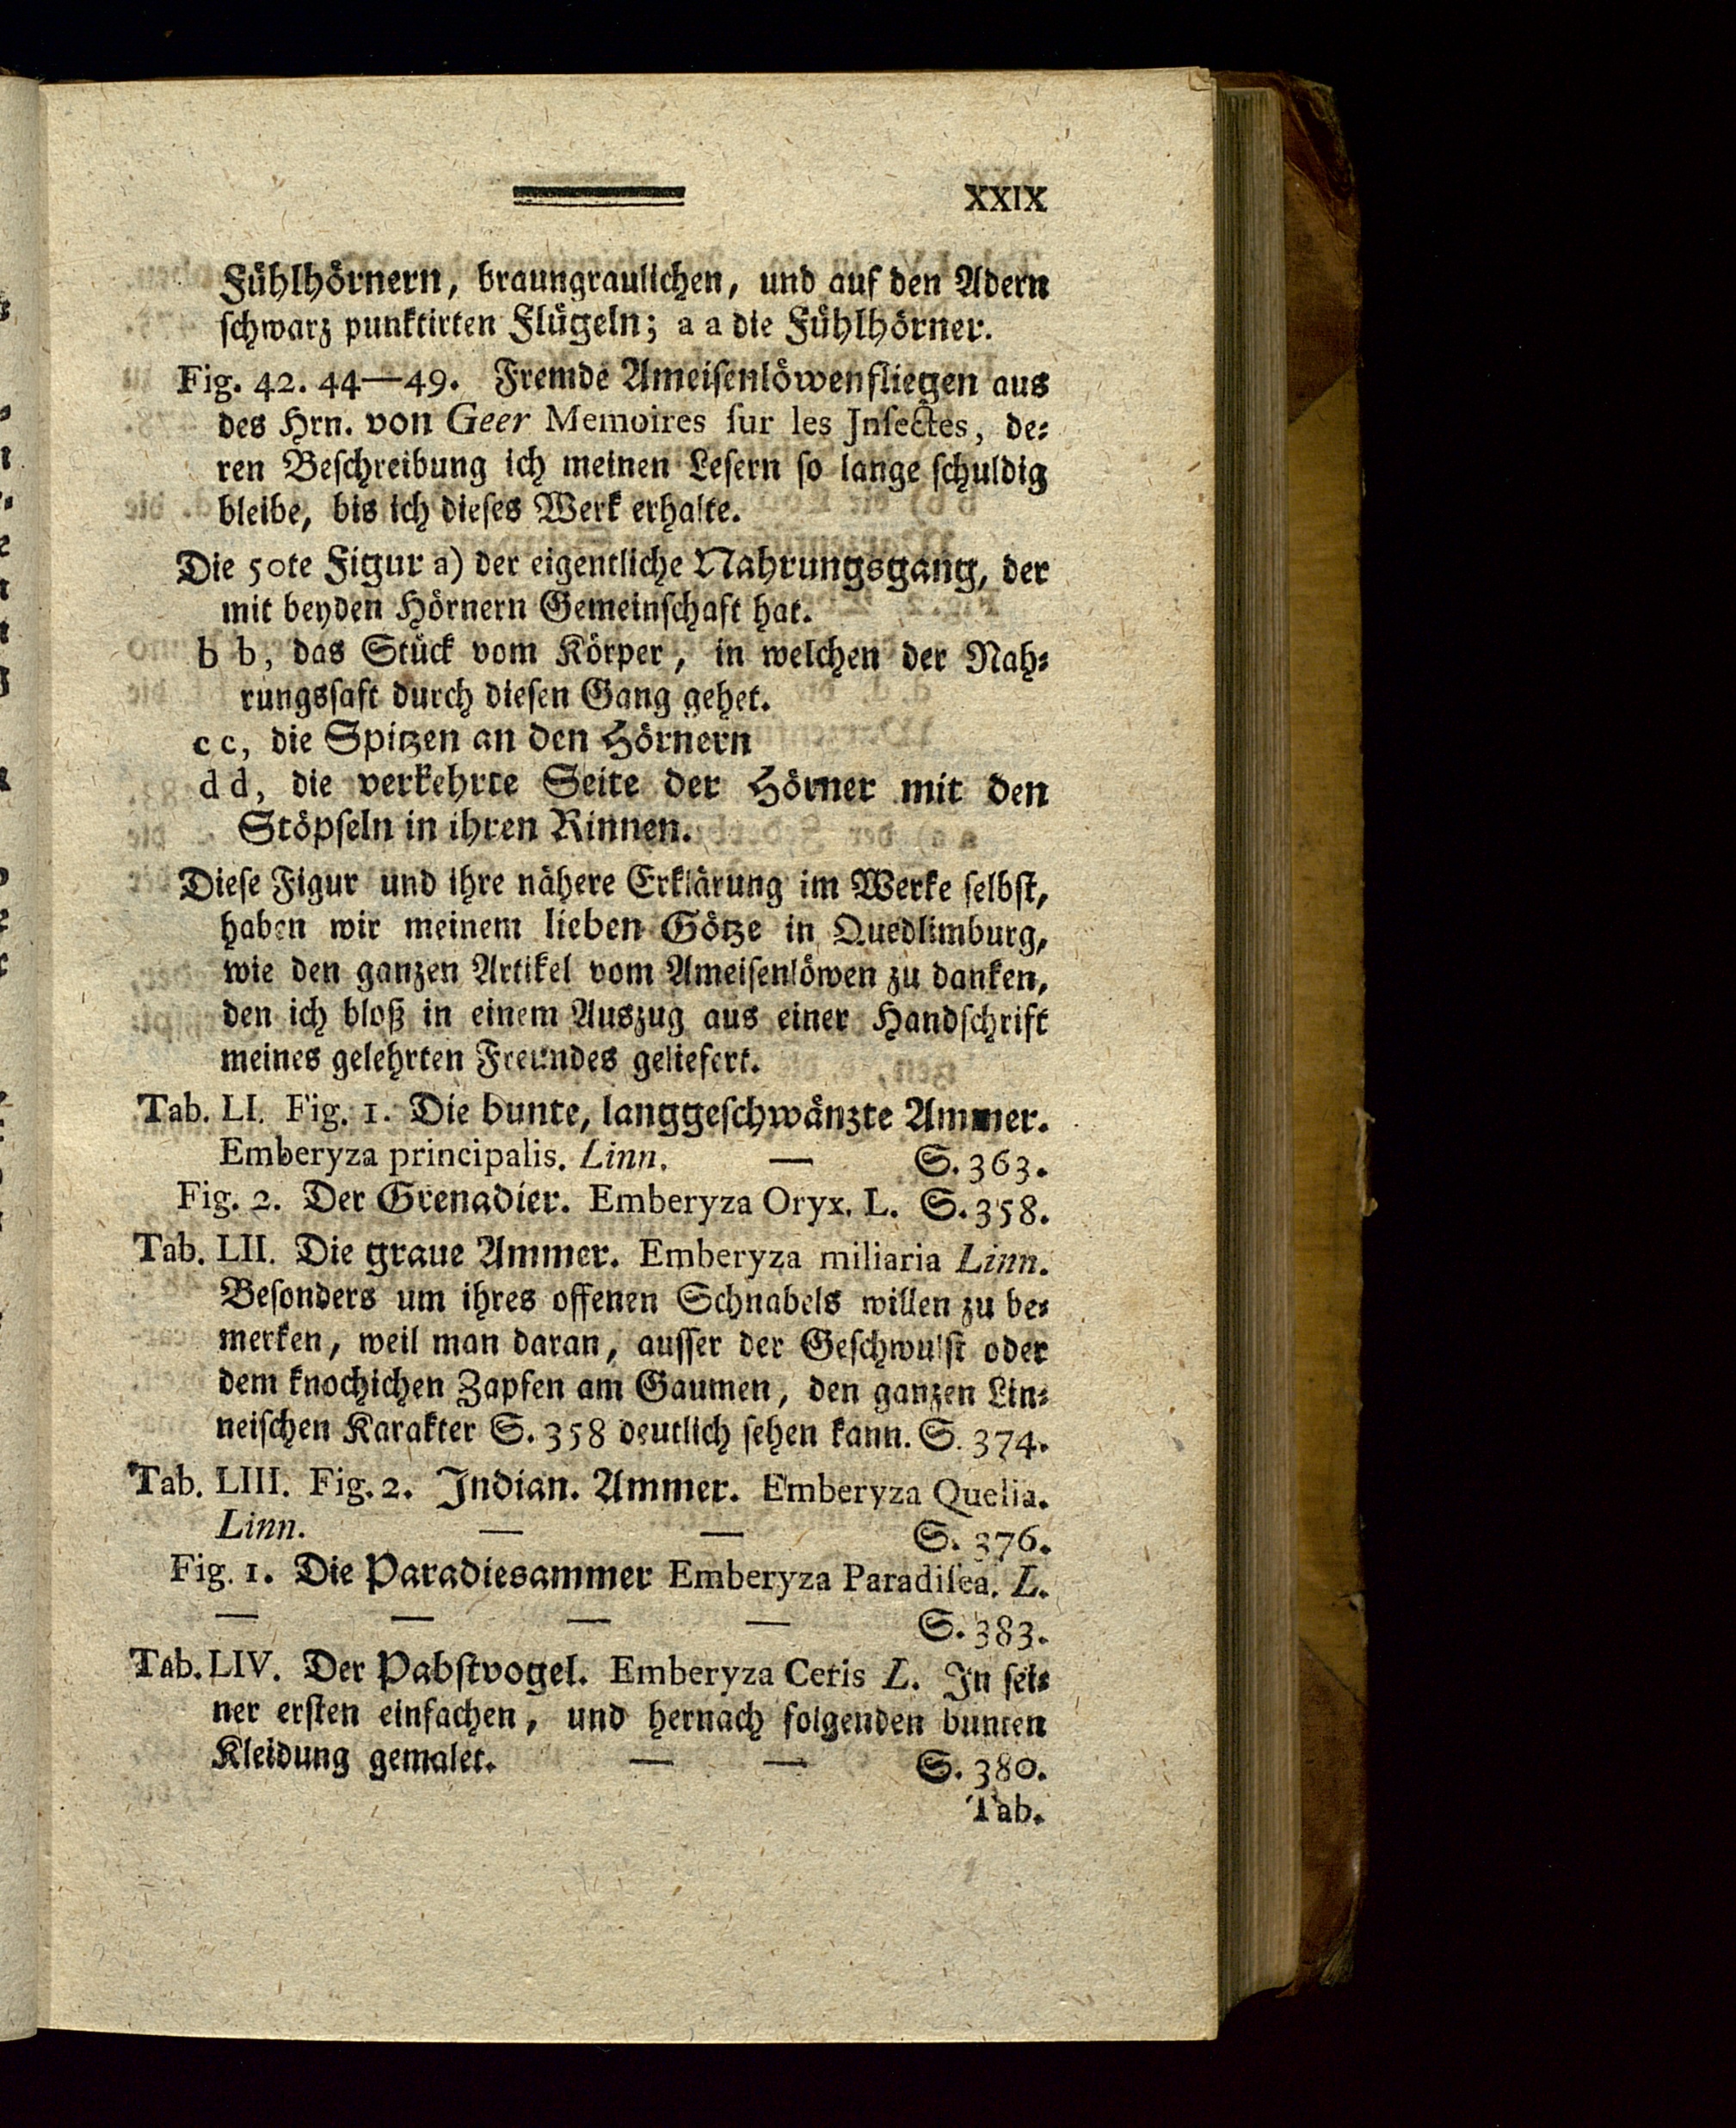 XXIX
Fühlhörnern, braungraulichen, und auf den Adern
schwarz punktirten Flügeln; a a die Fühlhörner.
Fig. 42. 44—49. Fremde Ameisenlöwenfliegen aus
des Hrn. von Geer Memoires sur les Jnsectes, de-
ren Beschreibung ich meinen Lesern so lange schuldig
bleibe, bis ich dieses Werk erhalte.
Die 50te Figur a) der eigentliche Nahrungsgang, der
mit beyden Hörnern Gemeinschaft hat.
b b, das Stück vom Körper, in welchen der Nah-
rungssaft durch diesen Gang gehet.
c c, die Spitzen an den Hörnern
d d, die verkehrte Seite der Hörner mit den
Stöpseln in ihren Rinnen.
Diese Figur und ihre nähere Erklärung im Werke selbst,
haben wir meinem lieben Götze in Quedlimburg,
wie den ganzen Artikel vom Ameisenlöwen zu danken,
den ich bloß in einem Auszug aus einer Handschrift
meines gelehrten Freundes geliefert.
Tab. LI. Fig. 1. Die bunte, langgeschwänzte Ammer.
Emberyza principalis. Linn. — S. 363.
Fig. 2. Der Grenadier. Emberyza Oryx. L. S. 358.
Tab. LII. Die graue Ammer. Emberyza miliaria Linn.
Besonders um ihres offenen Schnabels willen zu be-
merken, weil man daran, ausser der Geschwulst oder
dem knochichen Zapfen am Gaumen, den ganzen Lin-
neischen Karakter S. 358 deutlich sehen kann. S. 374.
Tab. LIII. Fig. 2. Indian. Ammer. Emberyza Quelia.
Linn. — — S. 376.
Fig. 1. Die Paradiesammer Emberyza Paradisea. L.
— — — — S. 383.
Tab. LIV. Der Pabstvogel. Emberyza Ceris L. In sei-
ner ersten einfachen, und hernach folgenden bunten
Kleidung gemalet. — — S. 380.
Tab.